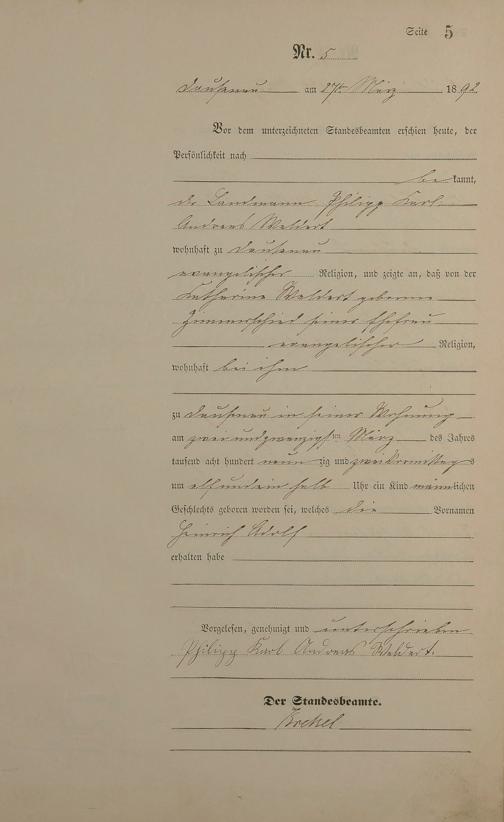 Seite 5
Nr. 5
Dausenau am 27ten März 1892
Vor dem unterzeichneten Standesbeamten erschien heute, der
Persönlichkeit nach
bekannt,
der Landmann Philipp Karl
Andreas Weldert
wohnhaft zu Dausenau
evangelischer Religion, und zeigte an, daß von der
Katharine Weldert geborene
Zimmerschied seiner Ehefrau
evangelischer Religion,
wohnhaft bei ihm
zu Dausenau in seiner Wohnung
am zwei und zwanzigsten März des Jahres
tausend acht hundert neunzig und zwei Vormittags
um elf und ein halb Uhr ein Kind männlichen
Geschlechts geboren worden sei, welches die Vornamen
Heinrich Adolf
erhalten habe
Vorgelesen, genehmigt und unterschrieben
Philipp Karl Andreas Weldert
Der Standesbeamte.